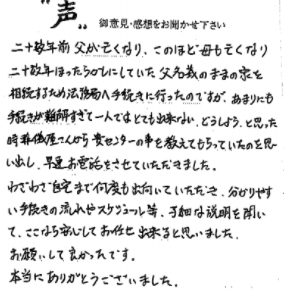 "声"
御意見・感想をお聞かせ下さい
二十数年前 父が亡くなり、このほど母も亡くなり
二十数年ほったらかしにしていた 父名義のままの家を
相続するため法務局へ手続きに行ったのですが、あまりにも
手続きが難解すぎて一人ではとても出来ない、どうしよう、と思った
時葬儀屋さんから センターの事を教えてもらっていたのを思
い出し、早速お電話をさせていただきました。
わざわざ自宅まで何度も出向いていただき、分かりやす
い手続きの流れやスケジュール等、丁寧な説明を聞い
て、ここなら安心してお任せ出来ると思いました。
お願いして良かったです。
本当にありがとうございました。